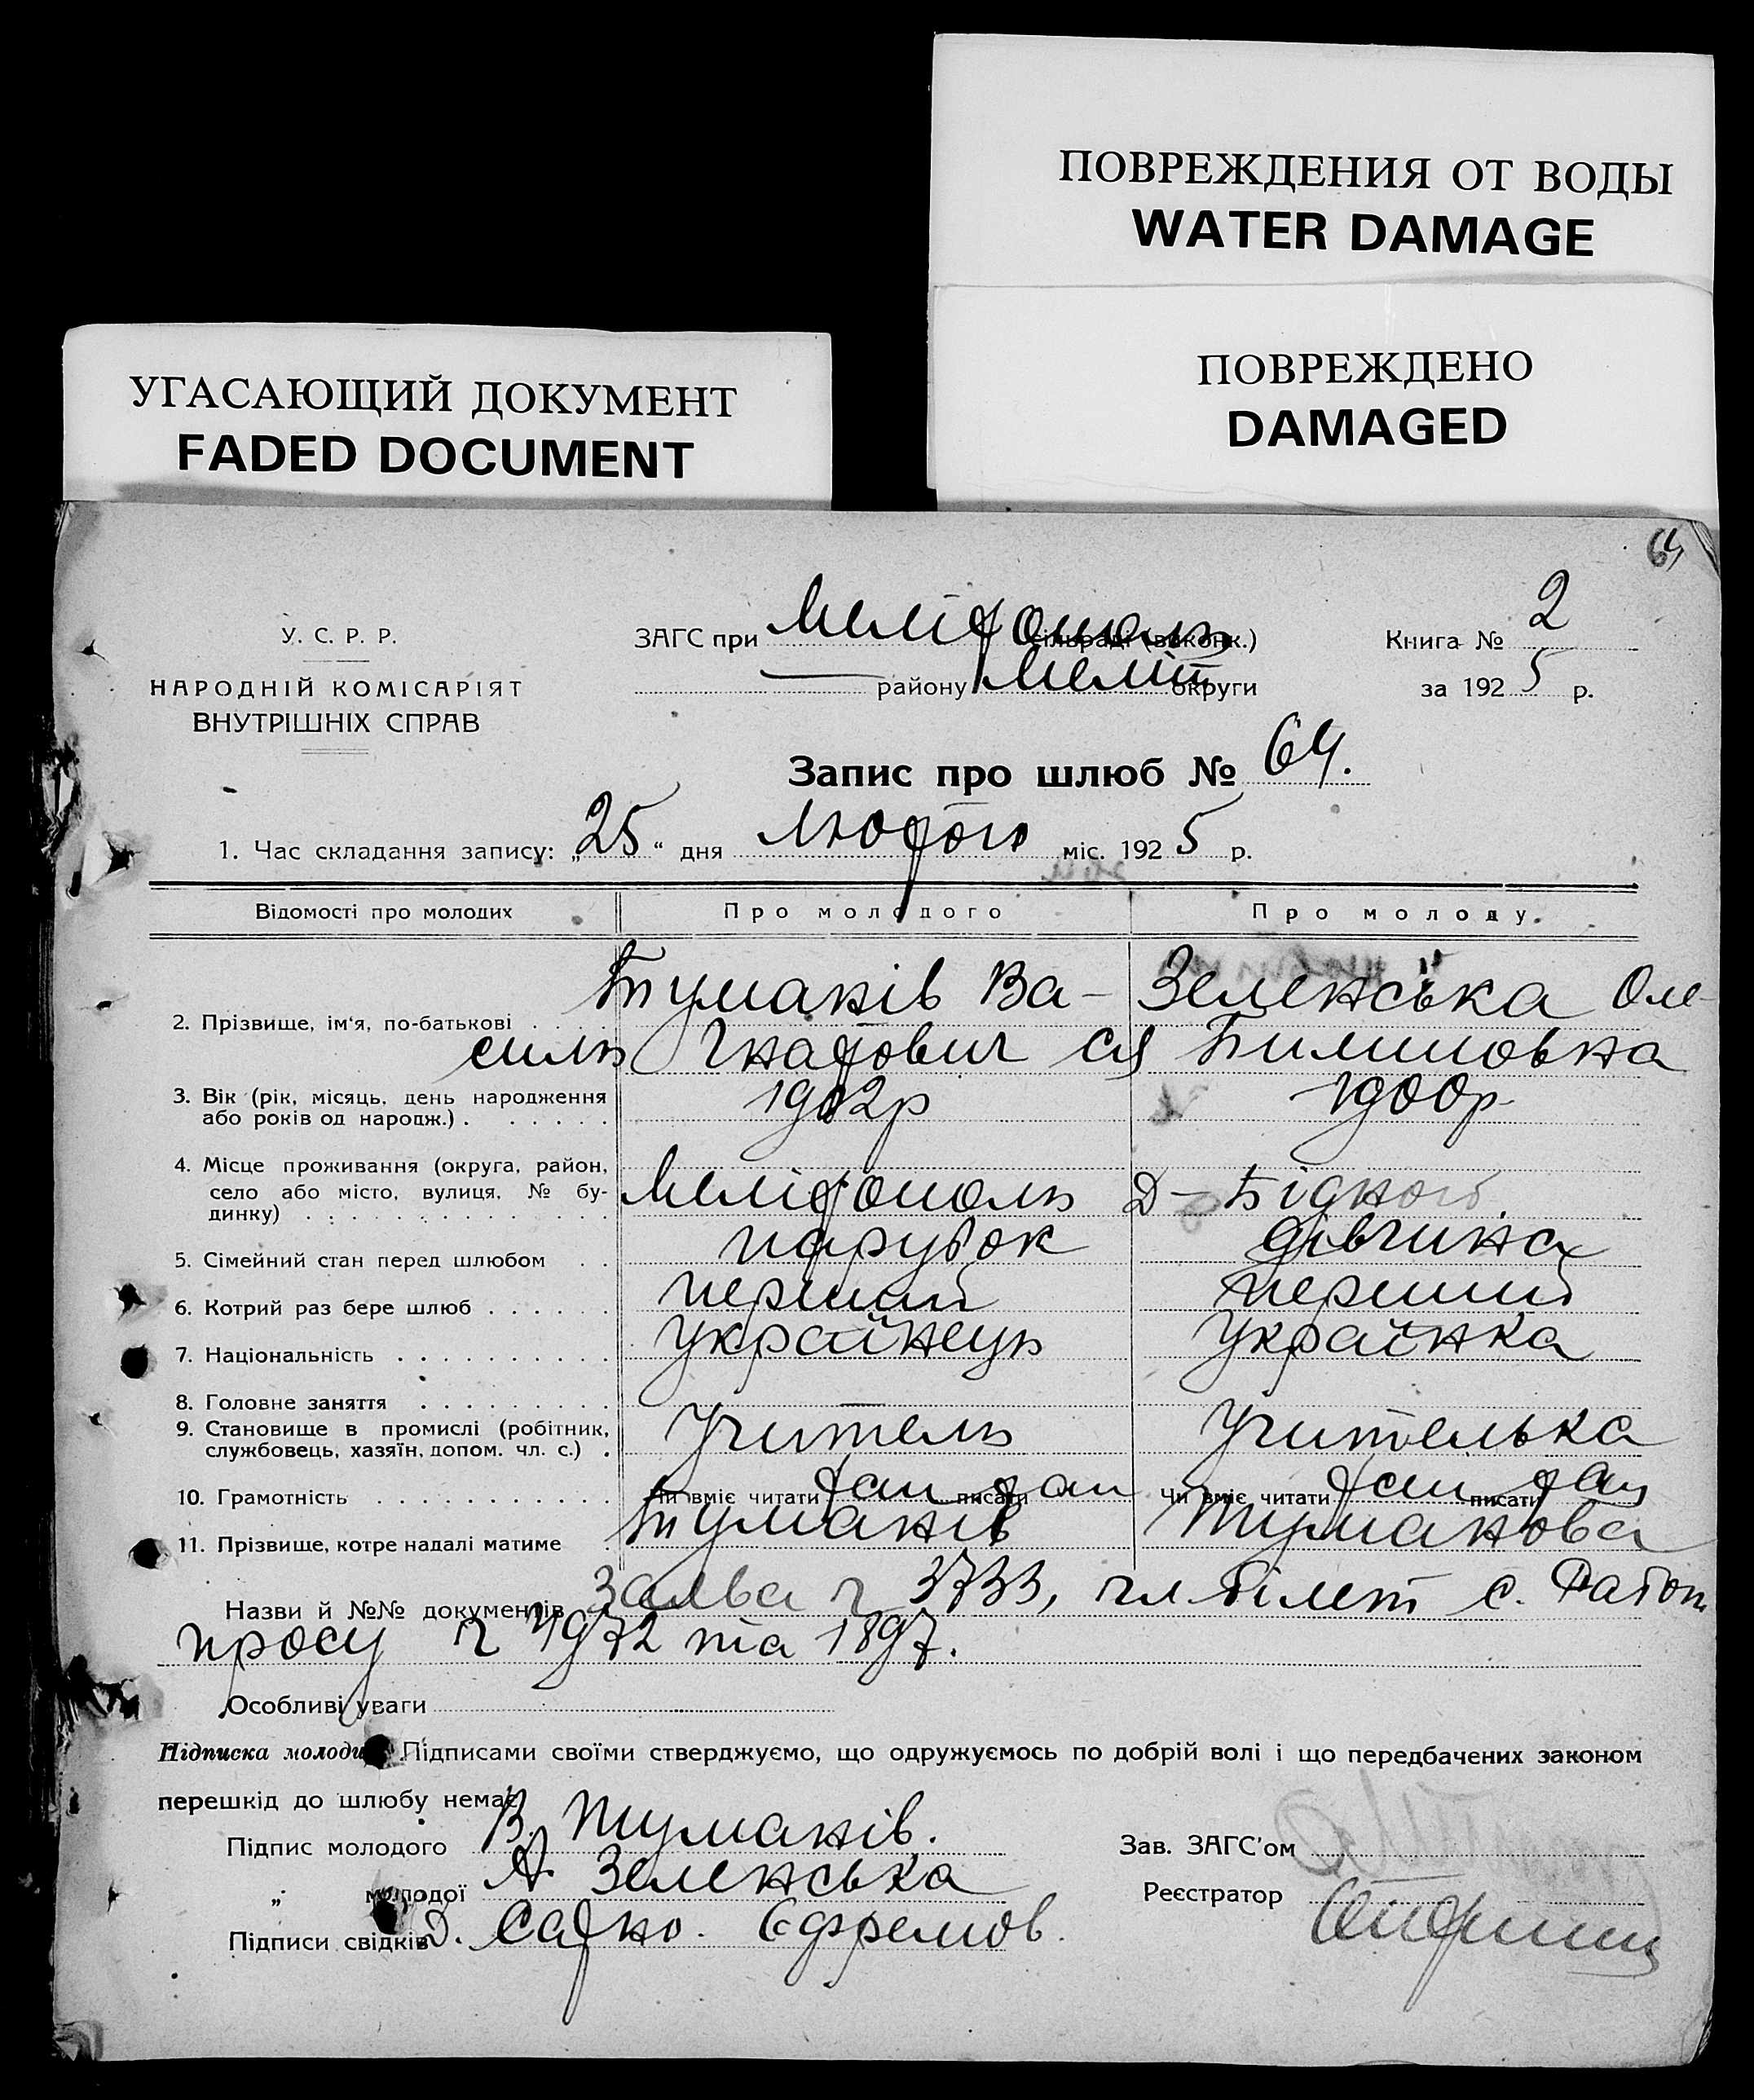 ПОВРЕЖДЕНИЯ ОТ ВОДЫ
WATER DAMAGE
ПОВРЕЖДЕНО
DAMAGED
УГАСАЮЩИЙ ДОКУМЕНТ
FADED DOCUMENT
64
У. С. Р. Р.
НАРОДНІЙ КОМІСАРІЯТ
ВНУТРІШНІХ СПРАВ
ЗАГС при Мелітополь сільраді (виконк.)
району Меліт округи
Книга № 2
за 1925 р.
Запис про шлюб № 64.
1. Час складання запису: „25“ дня Лютого міс. 1925 р.
Відомості про молодих Про молодого Про молоду.
2. Прізвище, ім'я, по-батькові . . . . Туманів Ва- Зеленська Оле-
силь Гнатович ся Тимшовна
3. Вік (рік, місяць, день народження
або років од народж.) . . . . . . 1902р 1900р.
4. Місце проживання (округа, район,
село або місто, вулиця, № бу-
динку) . . . . . . . . . . . . . . Мелітополь Д-
5. Сімейний стан перед шлюбом . . парубок дівчина
6. Котрий раз бере шлюб . . . . . . перший перший
7. Національність . . . . . . . . . . українець українка
8. Головне заняття . . . . . . . . .
9. Становище в промислі (робітник,
службовець, хазяїн, допом. чл. с.) . Учитель Учителька
10. Грамотність . . . . . . . . . . . Чи вміє читати так писати так Чи вміє читати так писати так
11. Прізвище, котре надалі матиме . Туманів Туманова
Назви й №№ документів Заява ч 3733, чл білет с. Работ
просу ч 4972 та 1897.
Особливі уваги
Підписка молодих Підписами своїми стверджуємо, що одружуємось по добрій волі і що передбачених законом
перешкід до шлюбу немає
Підпис молодого В. Туманів.
„ молодої А Зеленська
Підписи свідків Д. Єфремов.
Зав. ЗАГС'ом
Реєстратор